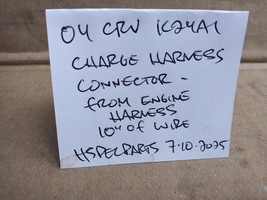 04 CRV K24A1
CHARGE HARNESS
CONNECTOR -
FROM ENGINE
HARNESS
10" OF WIRE
HSPECPARTS 7-10-2025